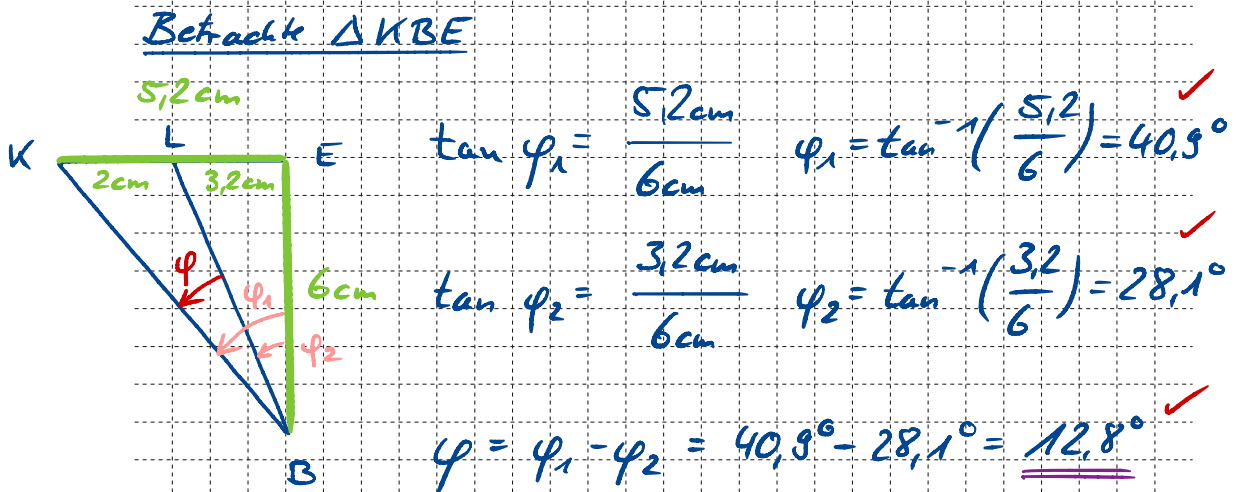 Betrachte Δ KBE
5,2cm
K L E
2cm 3,2cm
tan φ₁ = 5,2cm / 6cm φ₁ = tan⁻¹(5,2 / 6) = 40,9°
φ 6cm
φ₁
φ₂
tan φ₂ = 3,2cm / 6cm φ₂ = tan⁻¹(3,2 / 6) = 28,1°
B
φ = φ₁ - φ₂ = 40,9° - 28,1° = 12,8°